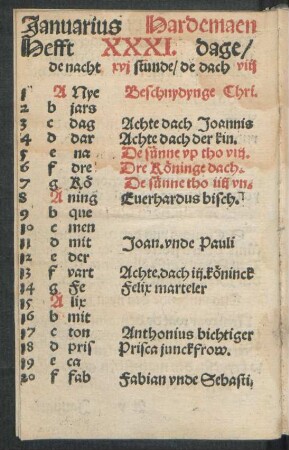 Januarius Hardemaen
Hefft XXXI. dage/
de nacht xvj stunde/ de dach viij
1 A Nye Beschnydynge Chri.
2 b jars
3 c dag Achte dach Joannis
4 d dar Achte dach der kin.
5 e na De sünne vp tho viij.
6 f dre Dre Köninge dach.
7 g Kö De sünne tho iiij vn.
8 A ning Euerhardus bisch.
9 b que
10 c men
11 d mit Joan. vnde Pauli
12 e der
13 f vart Achte. dach iij. köninck
14 g Fe Felix marteler
15 A lix
16 b mit
17 c ton Anthonius bichtiger
18 d pris Prisca junckfrow.
19 e ca
20 f fab Fabian vnde Sebasti.